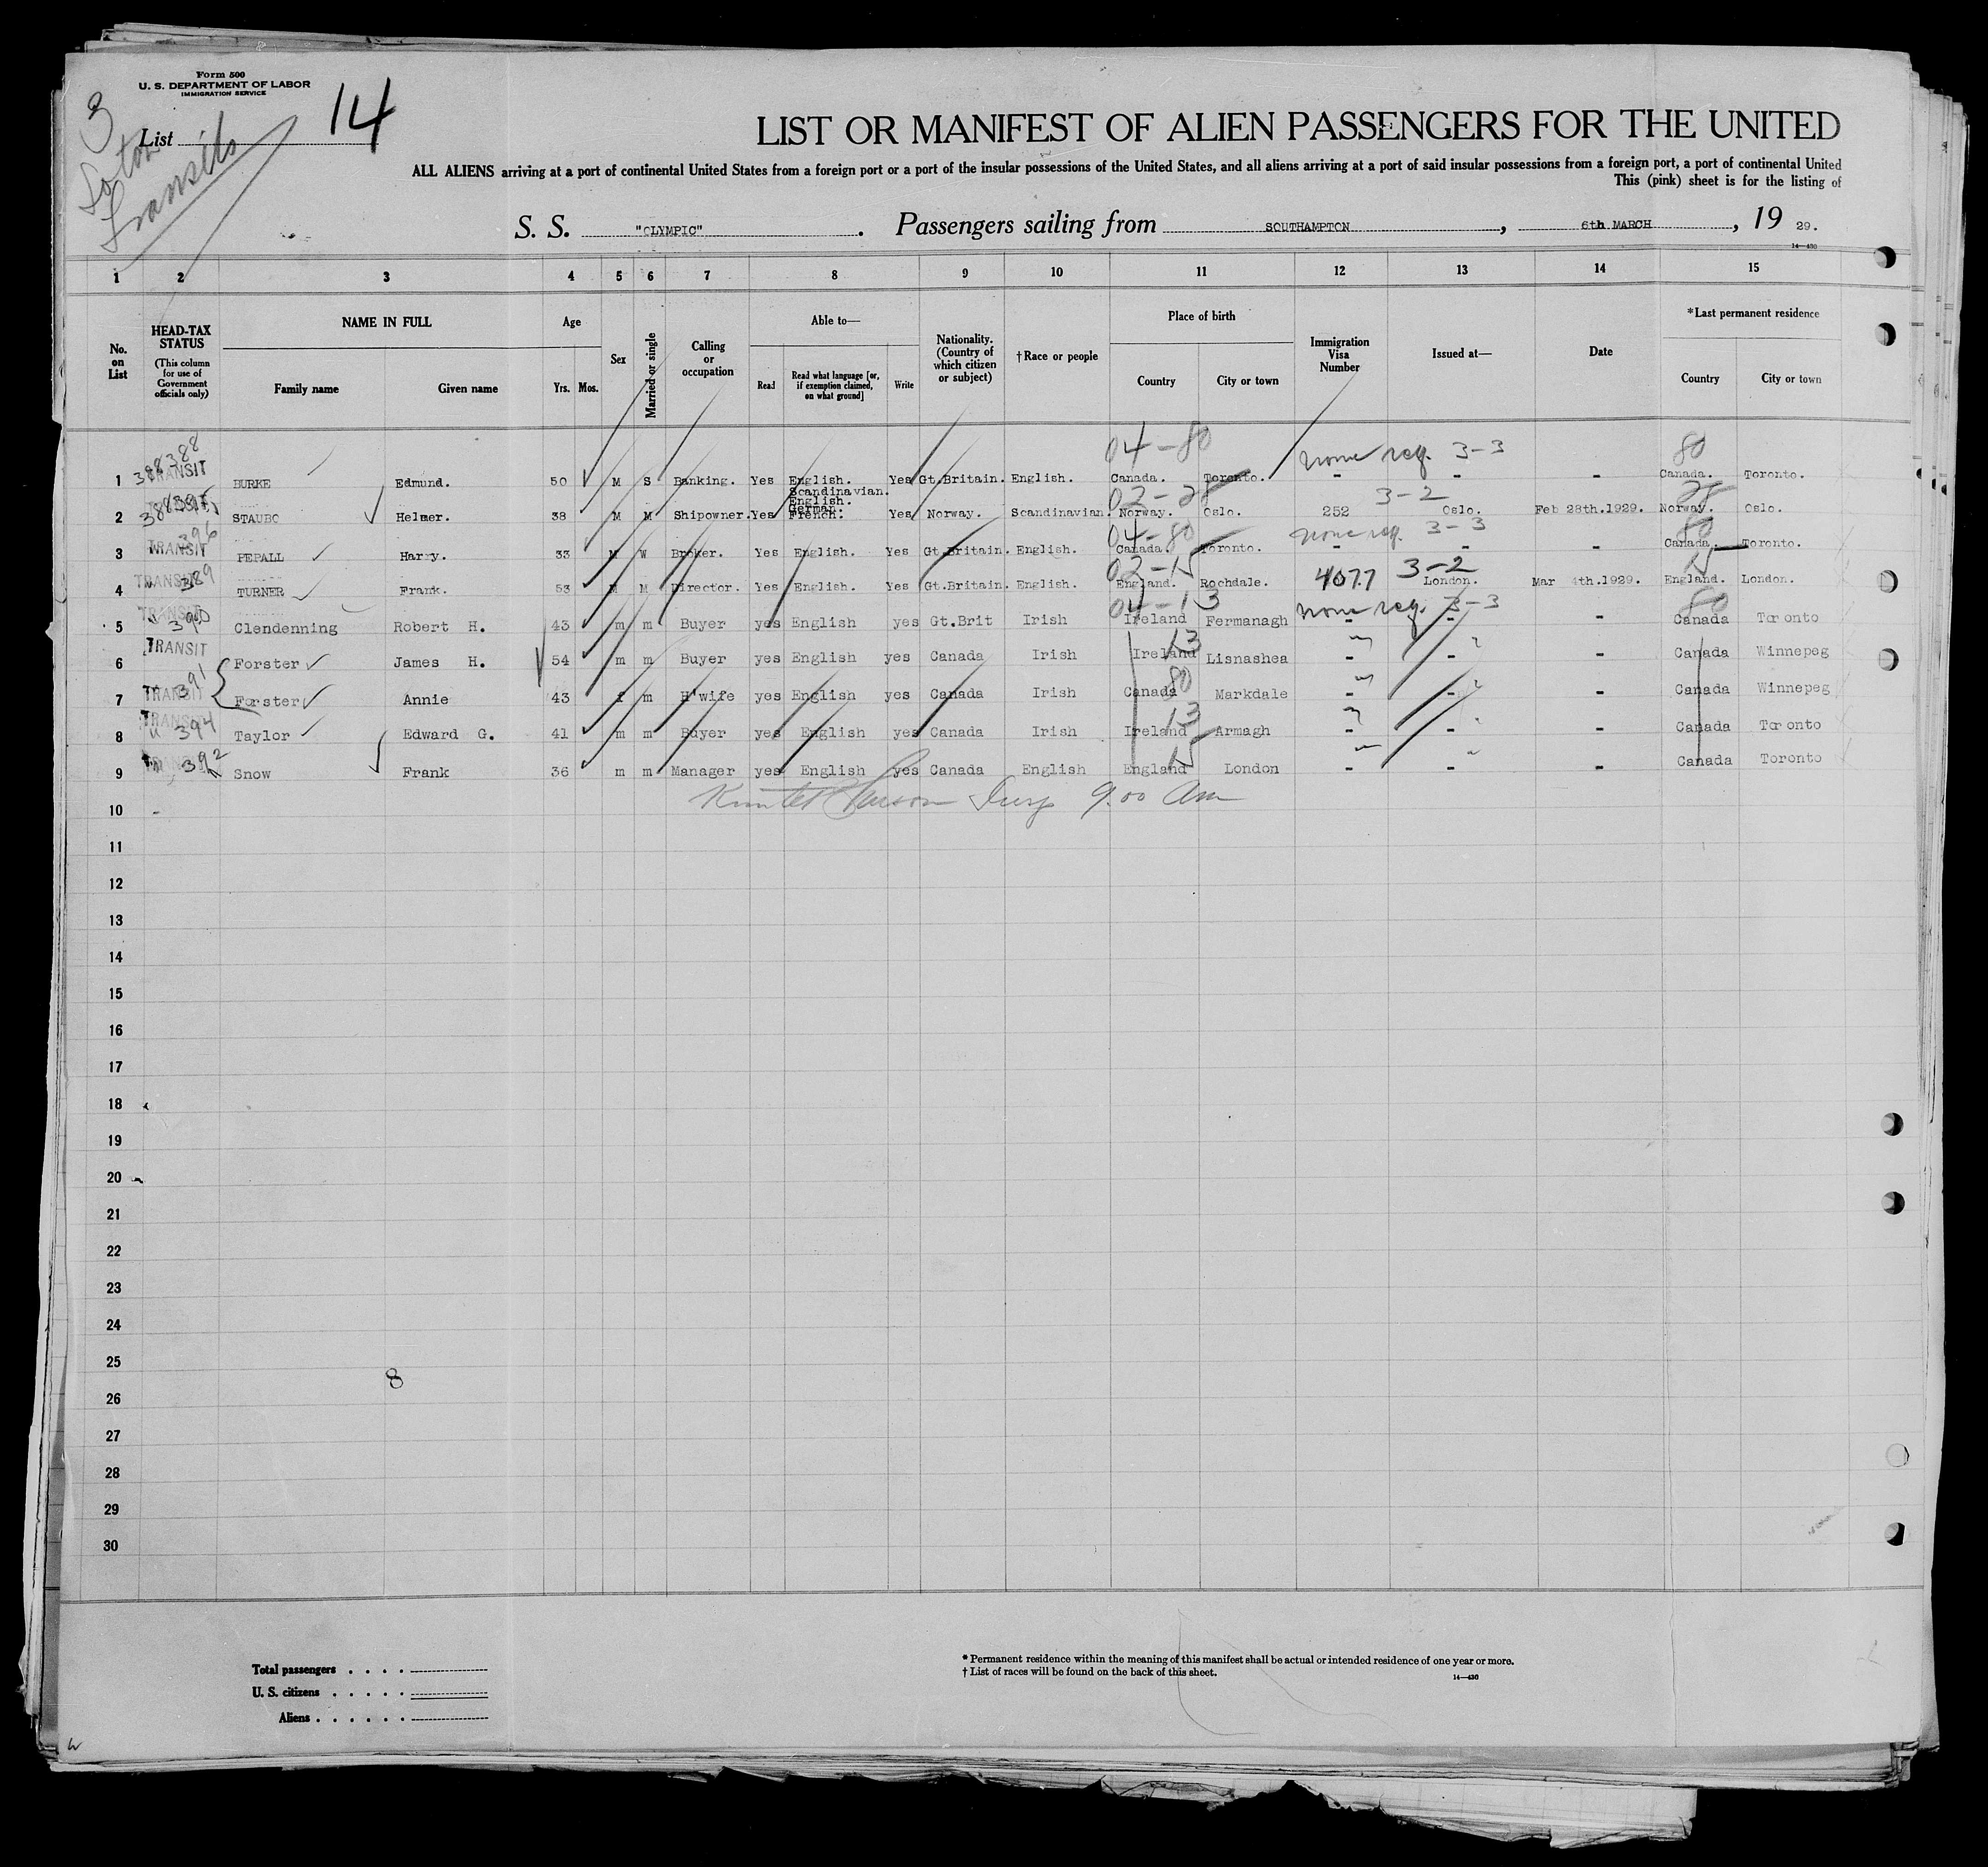 Form 500
U. S. DEPARTMENT OF LABOR
IMMIGRATION SERVICE
3
Soton
Transits
List
14
LIST OR MANIFEST OF ALIEN PASSENGERS FOR THE UNITED
ALL ALIENS arriving at a port of continental United States from a foreign port or a port of the insular possessions of the United States, and all aliens arriving at a port of said insular possessions from a foreign port, a port of continental United
This (pink) sheet is for the listing of
S. S. "OLYMPIC". Passengers sailing from SOUTHAMPTON, 6th MARCH, 19 29.
14—430
1 2 3 4 5 6 7 8 9 10 11 12 13 14 15
No. on List
HEAD-TAX STATUS (This column for use of Government officials only)
NAME IN FULL
Family name Given name
Age
Yrs. Mos.
Sex
Married or single
Calling or occupation
Able to—
Read
Read what language [or, if exemption claimed, on what ground]
Write
Nationality. (Country of which citizen or subject)
† Race or people
Place of birth
Country City or town
Immigration Visa Number
Issued at—
Date
*Last permanent residence
Country City or town
04-80 none req. 3-3 80
1 TRANSIT 388 BURKE Edmund. 50 M S Banking. Yes English. Yes Gt.Britain. English. Canada. Toronto. - - - Canada. Toronto.
Scandinavian. 02-28 3-2 28
English.
German.
2 STAUBO Helmer. 38 M M Shipowner. Yes French. Yes Norway. Scandinavian. Norway. Oslo. 252 Oslo. Feb 28th.1929. Norway. Oslo.
04-80 none req. 3-3 80
3 TRANSIT 396 PEPALL Harry. 33 M W Broker. Yes English. Yes Gt.Britain. English. Canada. Toronto. - - - Canada. Toronto.
02-15 3-2 15
4 TRANSIT 389 TURNER Frank. 53 M M Director. Yes English. Yes Gt.Britain. English. England. Rochdale. 4077 London. Mar 4th.1929. England. London.
04-13 none req. 3-3 80
5 TRANSIT 390 Clendenning Robert H. 43 m m Buyer yes English yes Gt.Brit Irish Ireland Fermanagh - - - Canada Toronto
13
6 TRANSIT Forster James H. 54 m m Buyer yes English yes Canada Irish Ireland Lisnashea - - - Canada Winnepeg
80
7 TRANSIT 391 Forster Annie 43 f m H'wife yes English yes Canada Irish Canada Markdale - - - Canada Winnepeg
13
8 TRANSIT 394 Taylor Edward G. 41 m m Buyer yes English yes Canada Irish Ireland Armagh - - - Canada Toronto
15
9 392 Snow Frank 36 m m Manager yes English yes Canada English England London - - - Canada Toronto
9.00 Am
10
11
12
13
14
15
16
17
18
19
20
21
22
23
24
25
8
26
27
28
29
30
Total passengers
U. S. citizens
Aliens
* Permanent residence within the meaning of this manifest shall be actual or intended residence of one year or more.
† List of races will be found on the back of this sheet.
14—430